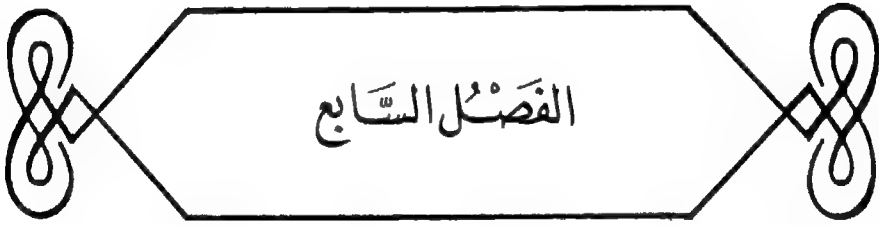 الفَصْلُ السَّابع